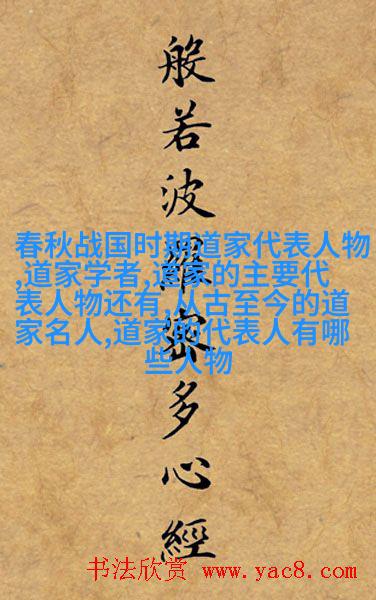 般若波羅蜜多心經
春秋战国时期道家代表人物
,道家学者,道家的主要代
表人物还有,从古至今的道
家名人,道家的代表人有哪
些人物
书法欣赏 www.yac8.com